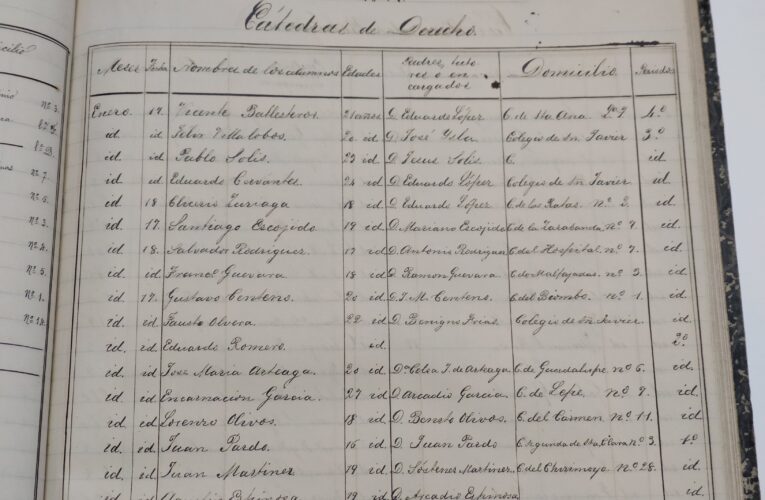 Cátedras de Derecho.
Meses Nombres de los alumnos Edades Padres, tuto res o en cargados Domicilio Periodos
Enero. 17. Vicente Ballesteros. 21 años D. Eduardo López C. de Sta. Ana 4º
id. id Felix Villalobos. 20 id D. José Ysla Colegio de Sn. Javier 3º
id. id Pablo Solis. 23 id D. Jesus Solis C. id
id id Eduardo Cervantes. 24 id D. Eduardo López Colegio de Sn. Javier. id.
id id 18 Zuriaga 18 id D. Eduardo López C. de las Ratas. nº 2. id.
id. 17. Santiago Escojido 19 id D. Mariano Escojido C. de la Zarabanda nº 9. id.
id. 18. Salvador Rodriguez. 17 id D. Antonio Rodriguez C. del Hospital nº 7. id.
id. id Francº Guevara. 18 id D. Ramon Guevara. C. de Malfajadas nº 3. id.
id. 17. Gustavo Centeno. 20 id D. J. M. Centeno. C. del Biombo. nº 1. id.
id. id. Fausto Olvera. 22 id D. Benigno Frias. Colegio de Sn. Javier. id.
id. id. Eduardo Romero. id 2º.
id. id. José Maria Arteaga. 20 id Dª Celsa F. de Arteaga C. de Guadalupe nº 6. id.
id. id. Encarnación Garcia. 27 id D. Arcadio Garcia. C. de Lepe. nº 7. id.
id. id. Lorenzo Olivos. 18 id D. Benito Olivos. C. del Carmen nº 11. id.
id. id. Juan Pardo. 15 id D. Juan Pardo C. segunda de Sta. Clara nº 3. 1º
id. id. Juan Martinez 19 id. D. Sóstenes Martinez. C. del Chirimoyo nº 28. id.
Espinosa 19 id. D. Arcadio Espinosa
nº 5.
nº 7.
nº 6.
nº 3.
nº 4.
nº 5.
nº 1.
nº 18.